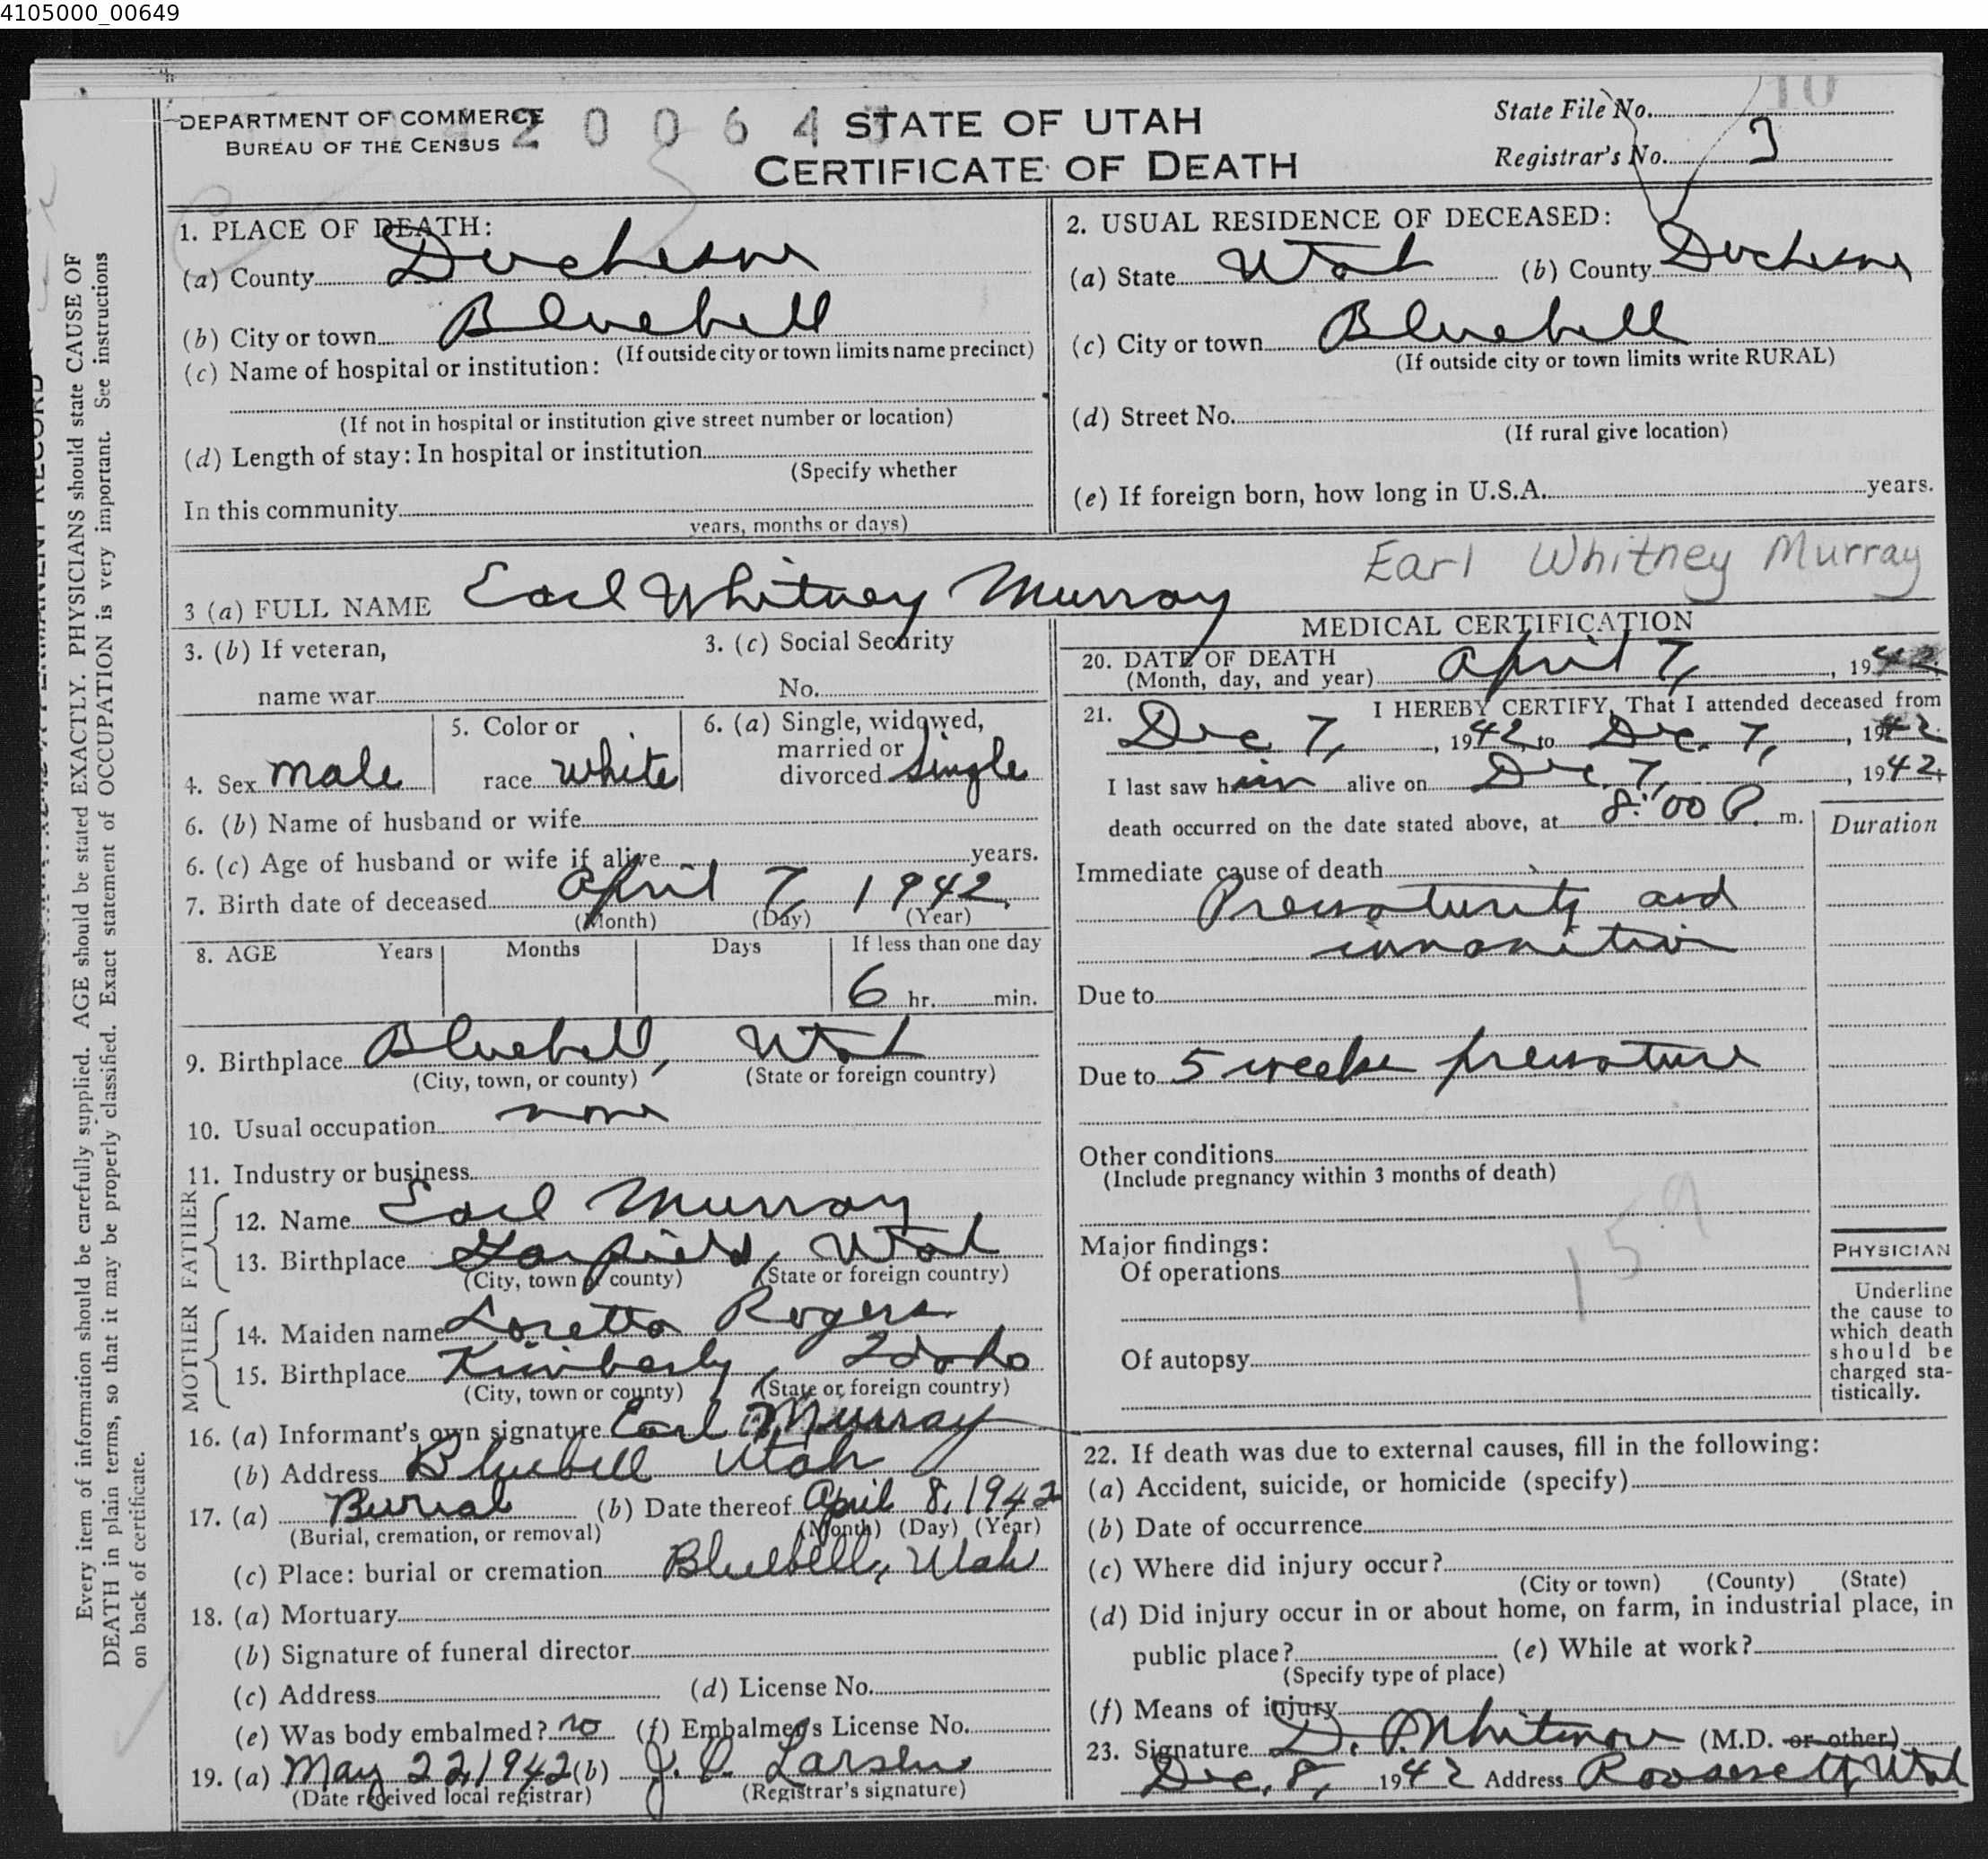 4105000_00649
DEPARTMENT OF COMMERCE
BUREAU OF THE CENSUS
STATE OF UTAH
CERTIFICATE OF DEATH
State File No. 10
Registrar's No. 3
1. PLACE OF DEATH:
(a) County Duchesne
(b) City or town Bluebell
(If outside city or town limits name precinct)
(c) Name of hospital or institution:
(If not in hospital or institution give street number or location)
(d) Length of stay: In hospital or institution
(Specify whether
In this community
years, months or days)
2. USUAL RESIDENCE OF DECEASED:
(a) State Utah (b) County Duchesne
(c) City or town Bluebell
(If outside city or town limits write RURAL)
(d) Street No.
(If rural give location)
(e) If foreign born, how long in U.S.A. years.
Earl Whitney Murray
3 (a) FULL NAME Earl Whitney Murray
3. (b) If veteran,
name war
3. (c) Social Security
No.
4. Sex male
5. Color or
race white
6. (a) Single, widowed,
married or
divorced single
6. (b) Name of husband or wife
6. (c) Age of husband or wife if alive years.
7. Birth date of deceased April 7, 1942.
(Month) (Day) (Year)
8. AGE Years Months Days If less than one day
6 hr. min.
9. Birthplace Bluebell, Utah
(City, town, or county) (State or foreign country)
10. Usual occupation none
11. Industry or business
FATHER
12. Name Earl Murray
13. Birthplace Garfield, Utah
(City, town or county) (State or foreign country)
MOTHER
14. Maiden name Loretta Rogers
15. Birthplace Kimberly, Idaho
(City, town or county) (State or foreign country)
16. (a) Informant's own signature Earl Murray
(b) Address Bluebell Utah
17. (a) Burial (b) Date thereof April 8, 1942
(Burial, cremation, or removal) (Month) (Day) (Year)
(c) Place: burial or cremation Bluebell, Utah
18. (a) Mortuary
(b) Signature of funeral director
(c) Address (d) License No.
(e) Was body embalmed? no (f) Embalmer's License No.
19. (a) May 22, 1942 (b) J. P. Larsen
(Date received local registrar) (Registrar's signature)
MEDICAL CERTIFICATION
20. DATE OF DEATH
(Month, day, and year) April 7, 1942.
21. I HEREBY CERTIFY, That I attended deceased from
Dec 7, 1942 to Dec. 7, 1942.
I last saw him alive on Dec 7, 1942,
death occurred on the date stated above, at 8:00 P. m.
Duration
Immediate cause of death
Prematurity and
innanition
Due to
Due to 5 weeks premature
Other conditions
(Include pregnancy within 3 months of death)
159
Major findings:
Of operations
Of autopsy
PHYSICIAN
Underline
the cause to
which death
should be
charged sta-
tistically.
22. If death was due to external causes, fill in the following:
(a) Accident, suicide, or homicide (specify)
(b) Date of occurrence
(c) Where did injury occur?
(City or town) (County) (State)
(d) Did injury occur in or about home, on farm, in industrial place, in
public place? (e) While at work?
(Specify type of place)
(f) Means of injury
23. Signature D. P. Whitmore (M.D. or other)
Dec. 8, 1942 Address Roosevelt, Utah
Every item of information should be carefully supplied. AGE should be stated EXACTLY. PHYSICIANS should state CAUSE OF
DEATH in plain terms, so that it may be properly classified. Exact statement of OCCUPATION is very important. See instructions
on back of certificate.